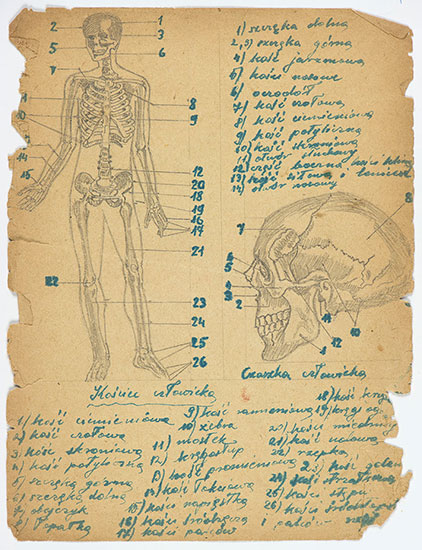 1) szczęka dolna
2,3) szczęka górna
4) kość jarzmowa
5) kości nosowe
6) oczodół
7) kość czołowa
8) kość ciemieniowa
9) kość potyliczna
10) kość skroniowa
11) otwór słuchowy
12) część boczna kości
13) kość sitowa i
14) otwór nosowy
1
2
3
5
6
7
8
9
11
10
14
15
12
20
18
19
16
17
21
22
23
24
25
26
7
8
6
5
4
3
2
11
12
10
1
Kościec człowieka
Czaszka człowieka
1) kość ciemieniowa
2) kość czołowa
3) kość skroniowa
4) kość potyliczna
5) szczęka górna
6) szczęka dolna
7) obojczyk
8) łopatka
9) kość ramieniowa
10) żebra
11) mostek
12) kręgosłup
13) kość promieniowa
14) kość łokciowa
15) kości nadgarstka
16) kości śródręcza
17) kości palców
18) kość
19)
20) kości
21) kość udowa
22) rzepka
23) kość
24) kość strzałkowa
25) kości stępu
26) kości
i palców